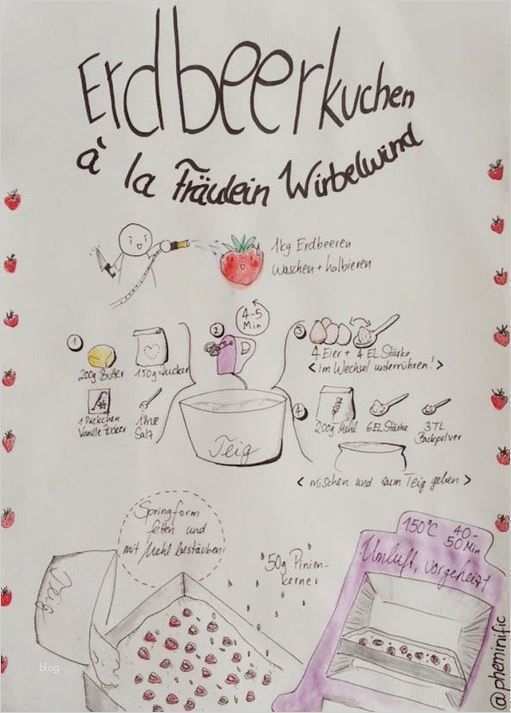 Erdbeerkuchen
à la Fräulein Wirbelwind
1kg Erdbeeren
Waschen + halbieren
1
200g Butter
150g Zucker
1 Päckchen
Vanille Zucker
1 Prise
Salz
2
4-5
Min
3
4 Eier + 4 EL Stärke
< im Wechsel unterrühren! >
4
200g Mehl
6 EL Stärke
3 TL
Backpulver
Teig
< mischen und zum Teig geben >
Springform
fetten und
mit Mehl bestäuben
50g Pinien-
kerne
Teig
150°C 40-
50 Min
Umluft, vorgeheizt
blog
@pheminific